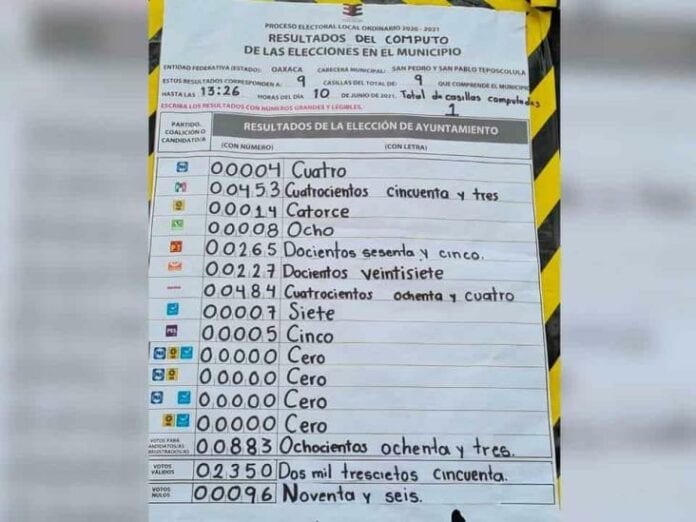 PROCESO ELECTORAL LOCAL ORDINARIO 2020 - 2021
RESULTADOS DEL COMPUTO
DE LAS ELECCIONES EN EL MUNICIPIO
ENTIDAD FEDERATIVA (ESTADO): OAXACA CABECERA MUNICIPAL: SAN PEDRO Y SAN PABLO TEPOSCOLULA
ESTOS RESULTADOS CORRESPONDEN A: 9 CASILLAS DEL TOTAL DE: 9 QUE COMPRENDE EL MUNICIPIO
HASTA LAS 13:26 HORAS DEL DÍA 10 DE JUNIO DE 2021. Total de casillas computadas
1
ESCRIBA LOS RESULTADOS CON NÚMEROS GRANDES Y LEGIBLES.
PARTIDO, COALICIÓN O CANDIDATO/A
RESULTADOS DE LA ELECCIÓN DE AYUNTAMIENTO
(CON NÚMERO) (CON LETRA)
PAN 00004 Cuatro
PRI 00453 Cuatrocientos cincuenta y tres
00014 Catorce
00008 Ocho
PT 00265 Docientos sesenta y cinco.
00227 Docientos veintisiete
00484 Cuatrocientos ochenta y cuatro
00007 Siete
PES 00005 Cinco
PAN 00000 Cero
PAN 00000 Cero
PAN 00000 Cero
00000 Cero
VOTOS PARA CANDIDATOS/AS REGISTRADOS/AS 00883 Ochocientos ochenta y tres.
VOTOS VÁLIDOS 02350 Dos mil trescietos cincuenta.
VOTOS NULOS 00096 Noventa y seis.